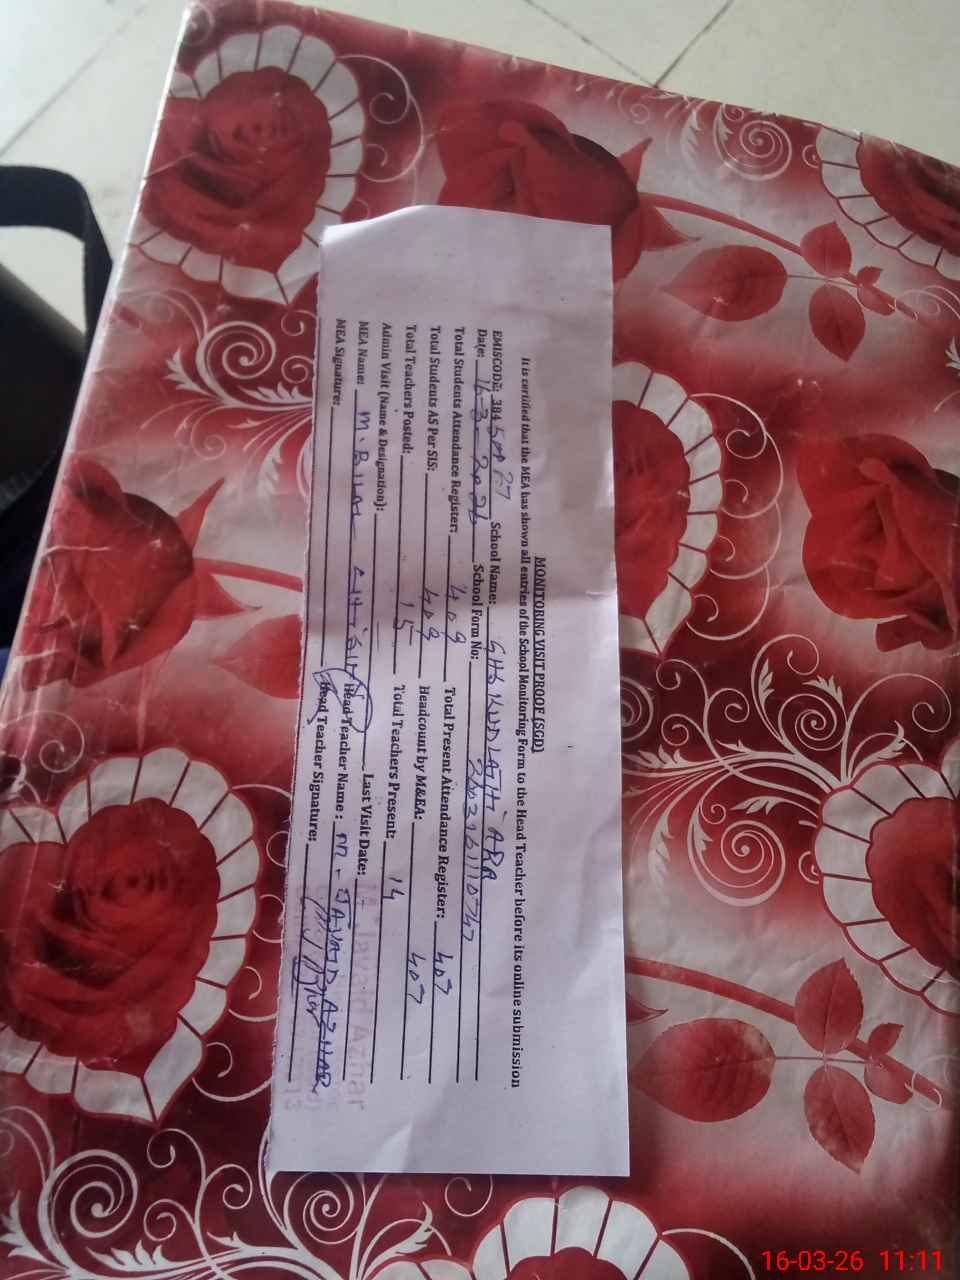 MONITORING VISIT PROOF (SGD)
It is certified that the MEA has shown all entries of the School Monitoring Form to the Head Teacher before its online submission
EMISCODE: 384 School Name: GHS KUDLATHI ARA
Date: 16-3-2026 School Form No:
Total Students Attendance Register: 409 Total Present Attendance Register: 407
Total Students AS Per SIS: 409 Headcount by M&EA: 407
Total Teachers Posted: 15 Total Teachers Present: 14
Admin Visit (Name & Designation): Last Visit Date:
MEA Name: M. BILAL Head Teacher Name: M. JAVAID AZHAR
MEA Signature: Head Teacher Signature:
Javaid Azhar
16-03-26 11:11